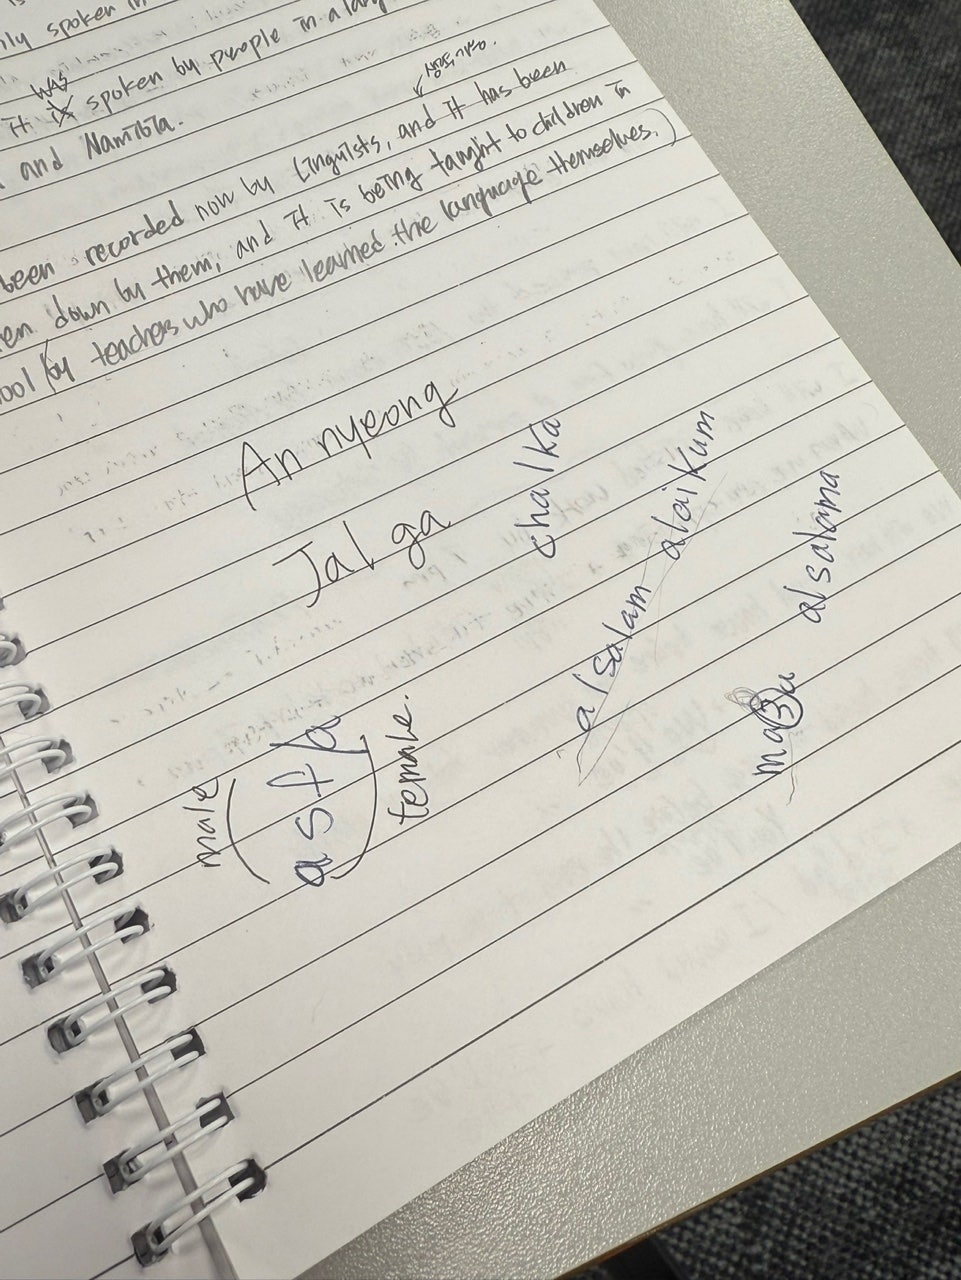 ly spoken in
was
it is spoken by people in a lang
and Namibia.
been recorded now by Linguists, and it has been
en down by them, and it is being taught to children in
ool (by teachers who have learned the language themselves.)
An nyeong
Jal ga
chalka
alsalam alaikum
ma3a alsalama
male
asf/a
female.